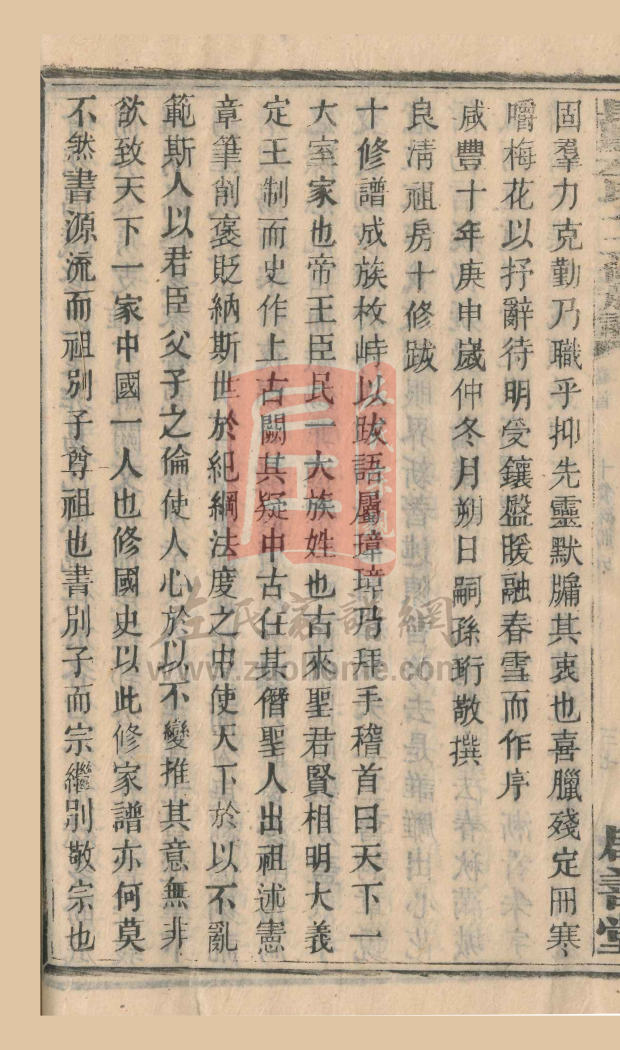 固羣力克勤乃職乎抑先靈默牖其衷也喜臘殘定冊寒
嚼梅花以抒辭待明受鑲盤暖融春雪而作序
咸豐十年庚申嵗仲冬月朔日嗣孫珩敬撰
良淸祖房十修跋
十修譜成族枚峙以跋語屬瑋瑋乃拜手稽首曰天下一
大室家也帝王臣民一大族姓也古來聖君賢相明大義
定王制而史作上古闕其疑中古仕其僭聖人出祖述憲
章筆削褒貶納斯世於紀綱法度之中使天下於以不亂
範斯人以君臣父子之倫使人心於以不變推其意無非
欲致天下一家中國一人也修國史以此修家譜亦何莫
不然書源流而祖別子尊祖也書別子而宗繼別敬宗也
左氏家譜網
www.zuohome.com